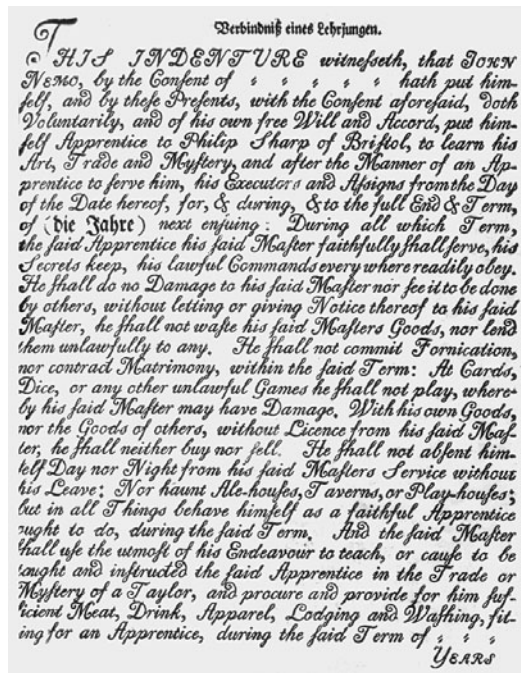 Verbindniß eines Lehrjungen.
THIS INDENTURE witnesseth, that JOHN
NEMO, by the Consent of " " " " " hath put him-
self, and by these Presents, with the Consent aforesaid, doth
Voluntarily, and of his own free Will and Accord, put him-
self Apprentice to Philip Sharp of Bristol, to learn his
Art, Trade and Mystery, and after the Manner of an Ap-
prentice to serve him, his Executors and Assigns from the Day
of the Date hereof, for, & during, & to the full End & Term,
of (die Jahre) next ensuing: During all which Term,
the said Apprentice his said Master faithfully shall serve, his
Secrets keep, his lawful Commands every where readily obey.
He shall do no Damage to his said Master nor see it to be done
by others, without letting or giving Notice thereof to his said
Master, he shall not waste his said Masters Goods, nor lend
them unlawfully to any. He shall not commit Fornication,
nor contract Matrimony, within the said Term: At Cards,
Dice, or any other unlawful Games he shall not play, where-
by his said Master may have Damage. With his own Goods,
nor the Goods of others, without Licence from his said Mas-
ter, he shall neither buy nor sell. He shall not absent him-
self Day nor Night from his said Masters Service without
his Leave: Nor haunt Ale-houses, Taverns, or Play-houses;
but in all Things behave himself as a faithful Apprentice
ought to do, during the said Term. And the said Master
shall use the utmost of his Endeavour to teach, or cause to be
taught and instructed the said Apprentice in the Trade or
Mystery of a Taylor, and procure and provide for him suf-
ficient Meat, Drink, Apparel, Lodging and Washing, fit-
ing for an Apprentice, during the said Term of " " "
YEARS